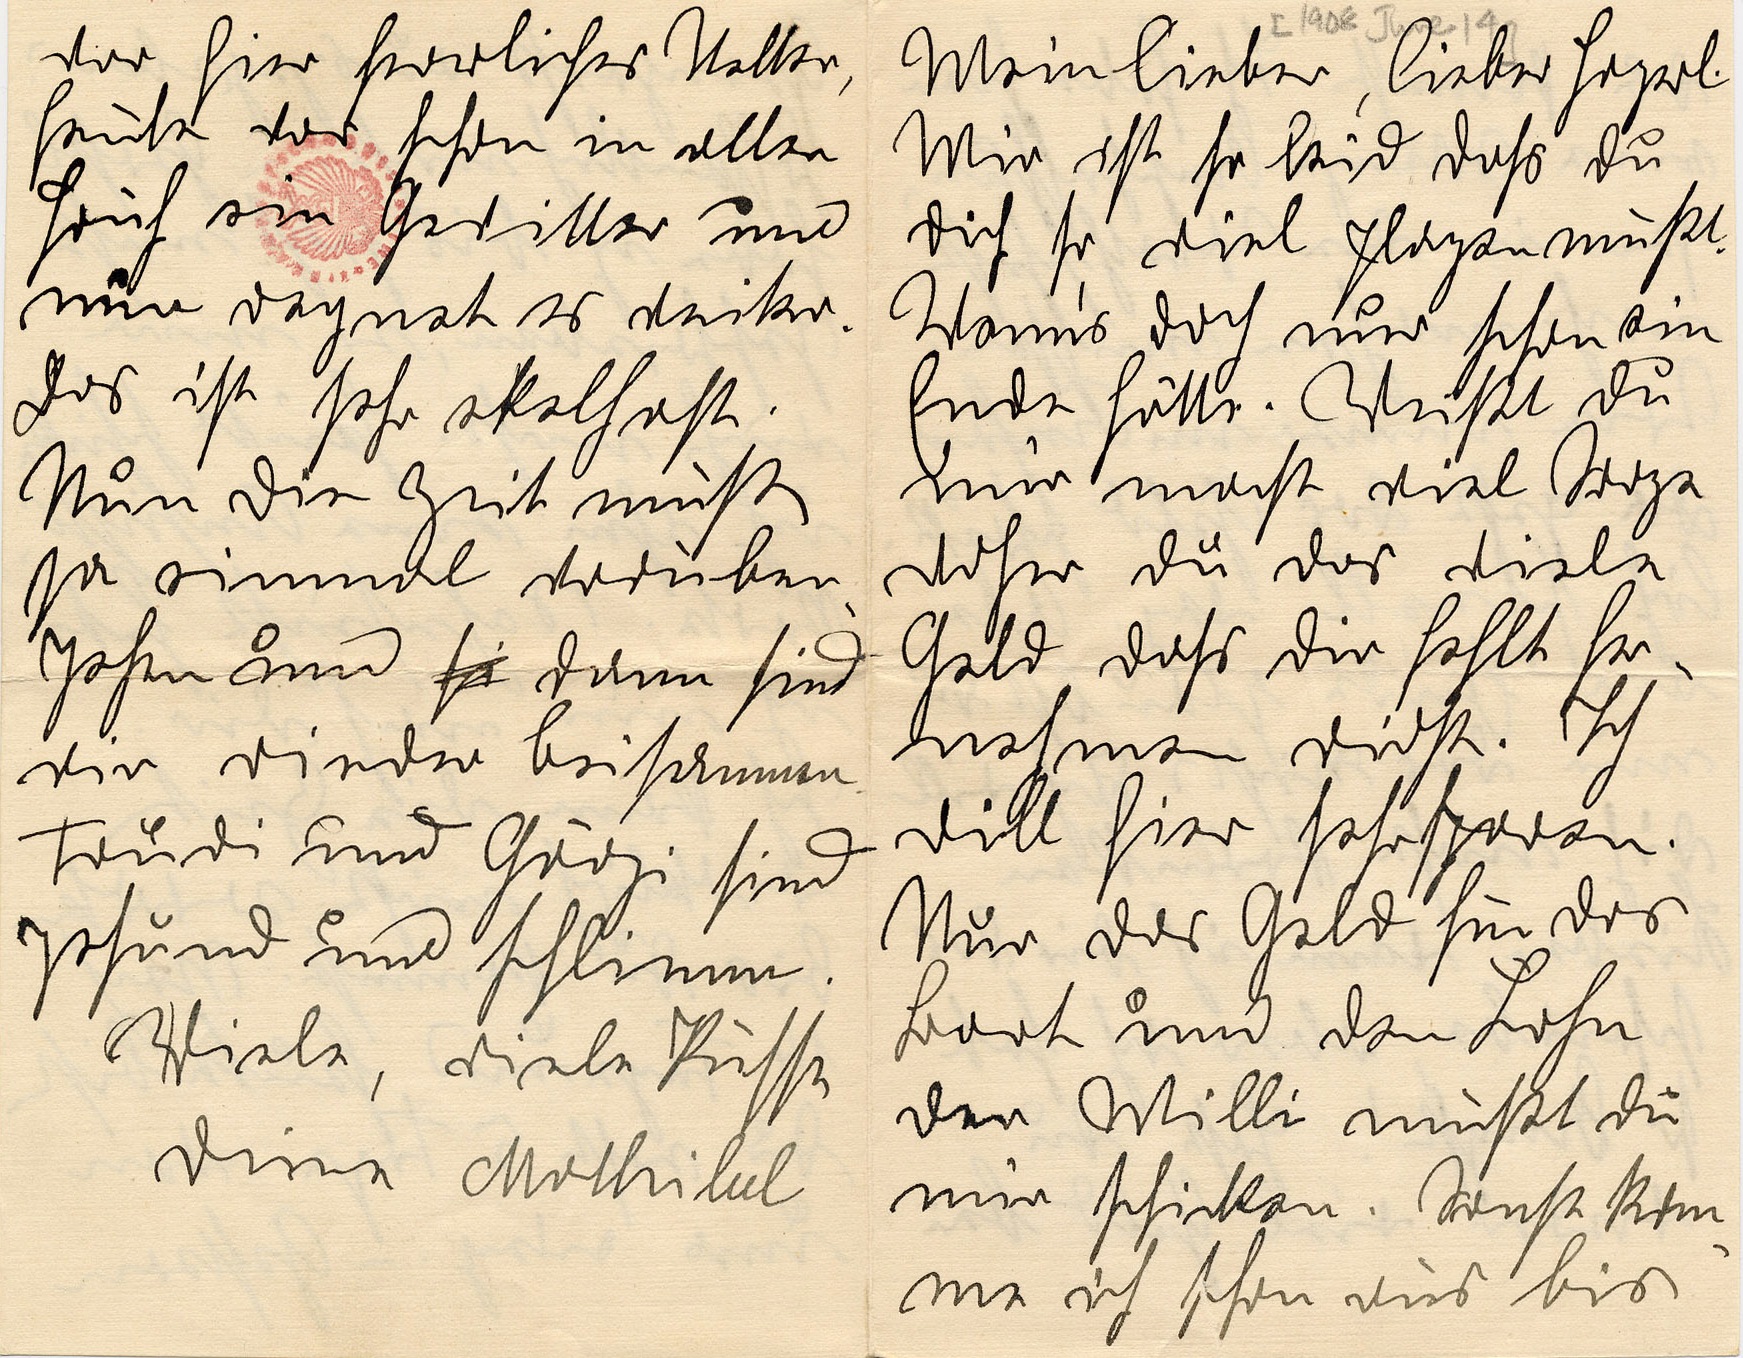 [1908 June 14]
Mein lieber, lieber Hazerl.
Mir ist so leid dass du
dich so viel plagen mußt.
Wenn's doch nur schon ein
Ende hätte. Weißt du
mir macht viel Sorge
woher du das viele
Geld dass dir fehlt her-
nehmen wirst. Ich
will hier sehr sparen.
Nur das Geld für das
und den Lohn
der Willi mußt du
mir schicken. Sonst kom-
me ich schon aus bis
war hier herrliches Wetter,
heute war schon in aller
Früh ein Gewitter und
nun regnet es weiter.
Das ist sehr ekelhaft.
Nun die Zeit muß
ja einmal vorüber-
gehen und si dann sind
wir wieder beisammen.
Trudi und Görgi sind
gesund und schlimm.
Viele, viele Küsse
deine